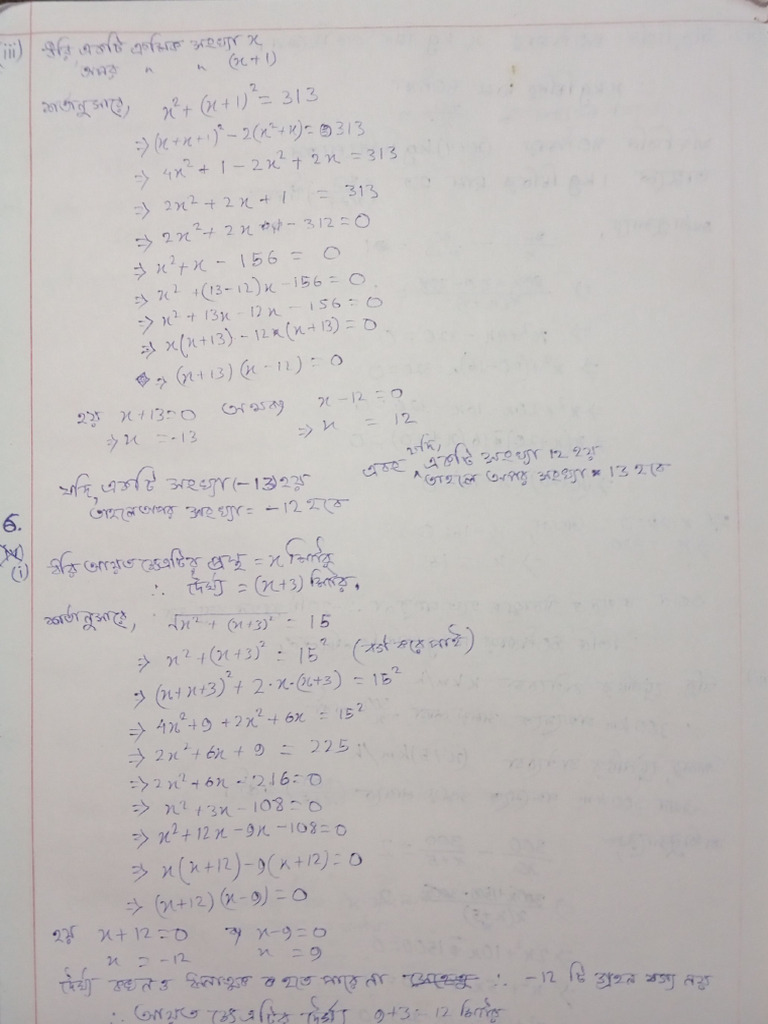 (iii) ধরি একটি ক্রমিক সংখ্যা x
অপর " " (x+1)
শর্তানুসারে, x² + (x+1)² = 313
⇒ (x+x+1)² - 2(x²+x) = 313
⇒ 4x² + 1 - 2x² + 2x = 313
⇒ 2x² + 2x + 1 = 313
⇒ 2x² + 2x - 312 = 0
⇒ x² + x - 156 = 0
⇒ x² + (13-12)x - 156 = 0
⇒ x² + 13x - 12x - 156 = 0
⇒ x(x+13) - 12(x+13) = 0
⇒ (x+13) (x-12) = 0
হয় x+13=0 অথবা x-12=0
⇒ x = -13 ⇒ x = 12
যদি, একটি সংখ্যা (-13) হয় এবং যদি, একটি সংখ্যা 12 হয়
তাহলে অপর সংখ্যা = -12 হবে তাহলে অপর সংখ্যা 13 হবে
6.
(i) ধরি আয়তক্ষেত্রটির প্রস্থ = x মিটার
∴ দৈর্ঘ্য = (x+3) মিটার.
শর্তানুসারে, √x² + (x+3)² = 15
⇒ x² + (x+3)² = 15² (বর্গ করে পাই)
⇒ (x+x+3)² + 2·x·(x+3) = 15²
⇒ 4x² + 9 + 2x² + 6x = 15²
⇒ 2x² + 6x + 9 = 225
⇒ 2x² + 6x - 216 = 0
⇒ x² + 3x - 108 = 0
⇒ x² + 12x - 9x - 108 = 0
⇒ x(x+12) - 9(x+12) = 0
⇒ (x+12) (x-9) = 0
হয় x+12=0 বা x-9=0
x = -12 x = 9
দৈর্ঘ্য কখনও ঋনাত্মক হতে পারে না ∴ -12 টি গ্রহন যোগ্য নয়
∴ আয়তক্ষেত্রটির দৈর্ঘ্য 9+3 = 12 মিটার